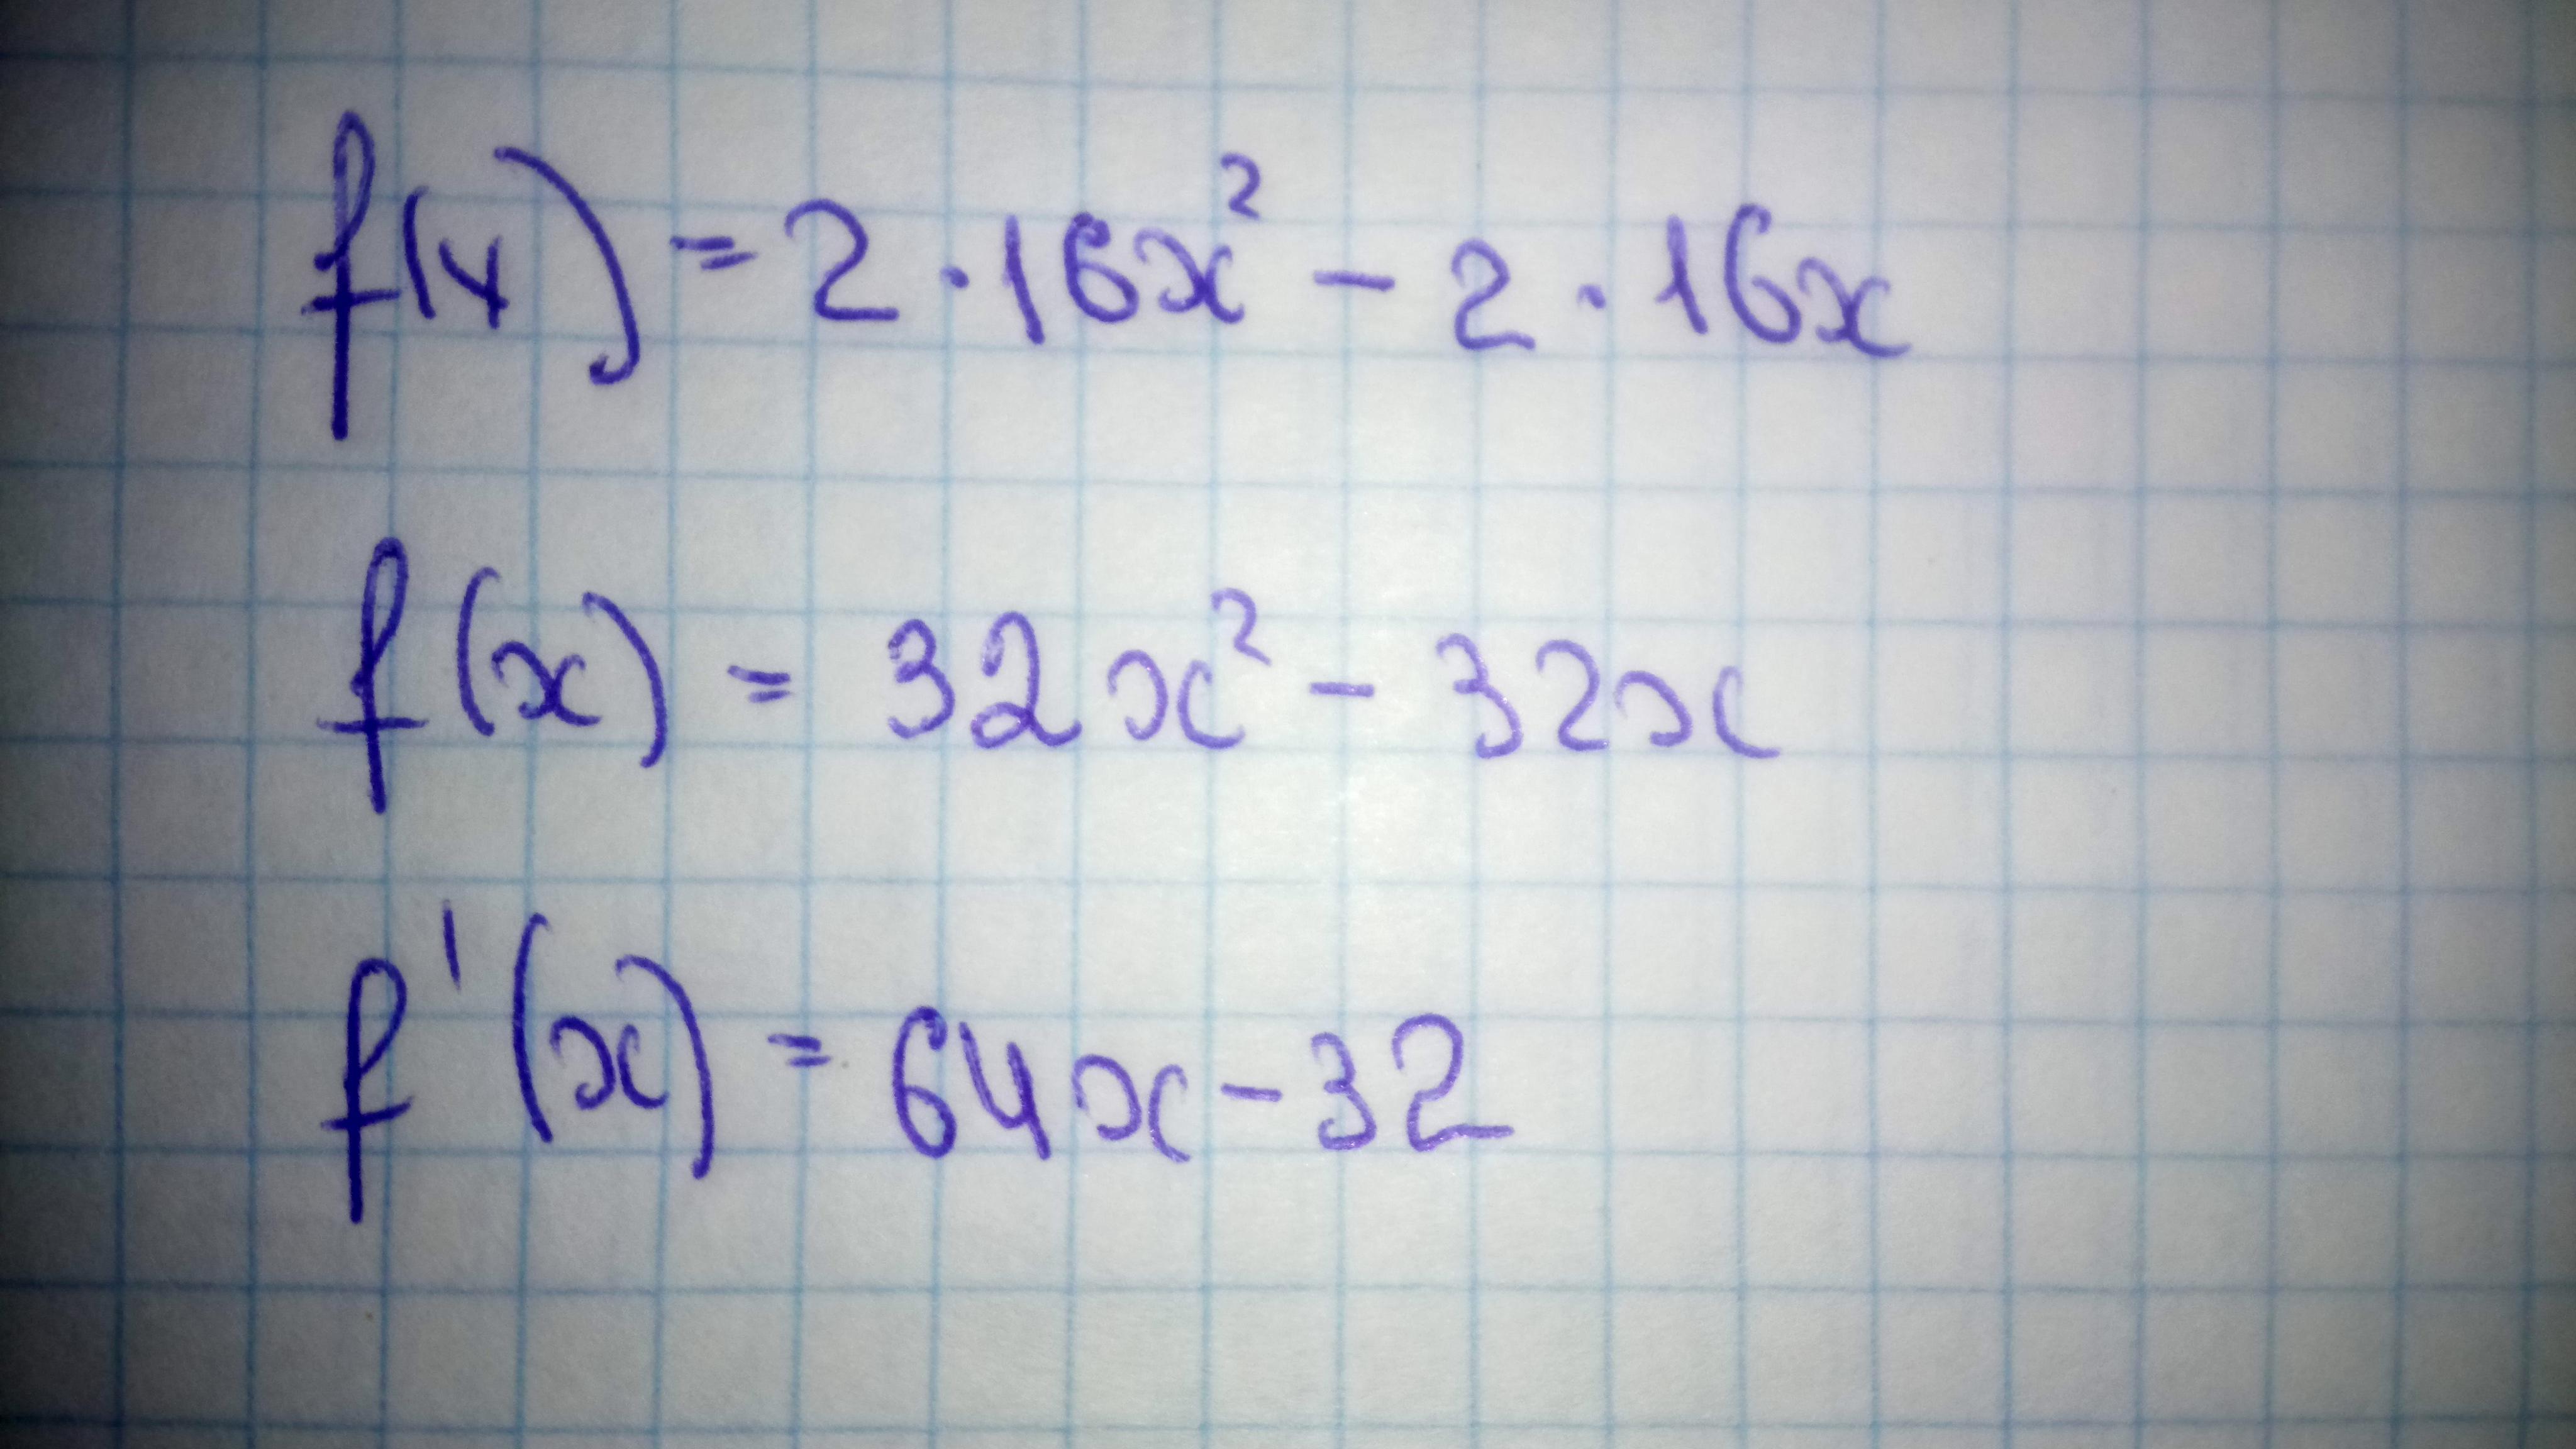 f(x) = 2 · 16x² - 2 · 16x
f(x) = 32x² - 32x
f'(x) = 64x - 32